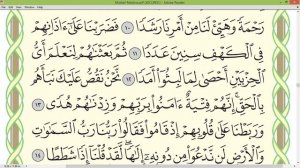 رَحْمَةً وَهَيِّئْ لَنَا مِنْ أَمْرِنَا رَشَدًا ١٠ فَضَرَبْنَا عَلَىٰٓ ءَاذَانِهِمْ
فِي ٱلْكَهْفِ سِنِينَ عَدَدًا ١١ ثُمَّ بَعَثْنَٰهُمْ لِنَعْلَمَ أَيُّ
ٱلْحِزْبَيْنِ أَحْصَىٰ لِمَا لَبِثُوٓا۟ أَمَدًا ١٢ نَّحْنُ نَقُصُّ عَلَيْكَ نَبَأَهُم
بِٱلْحَقِّ إِنَّهُمْ فِتْيَةٌ ءَامَنُوا۟ بِرَبِّهِمْ وَزِدْنَٰهُمْ هُدًى ١٣
وَرَبَطْنَا عَلَىٰ قُلُوبِهِمْ إِذْ قَامُوا۟ فَقَالُوا۟ رَبُّنَا رَبُّ ٱلسَّمَٰوَٰتِ
وَٱلْأَرْضِ لَن نَّدْعُوَا۟ مِن دُونِهِۦٓ إِلَٰهًا لَّقَدْ قُلْنَآ إِذًا شَطَطًا ١٤